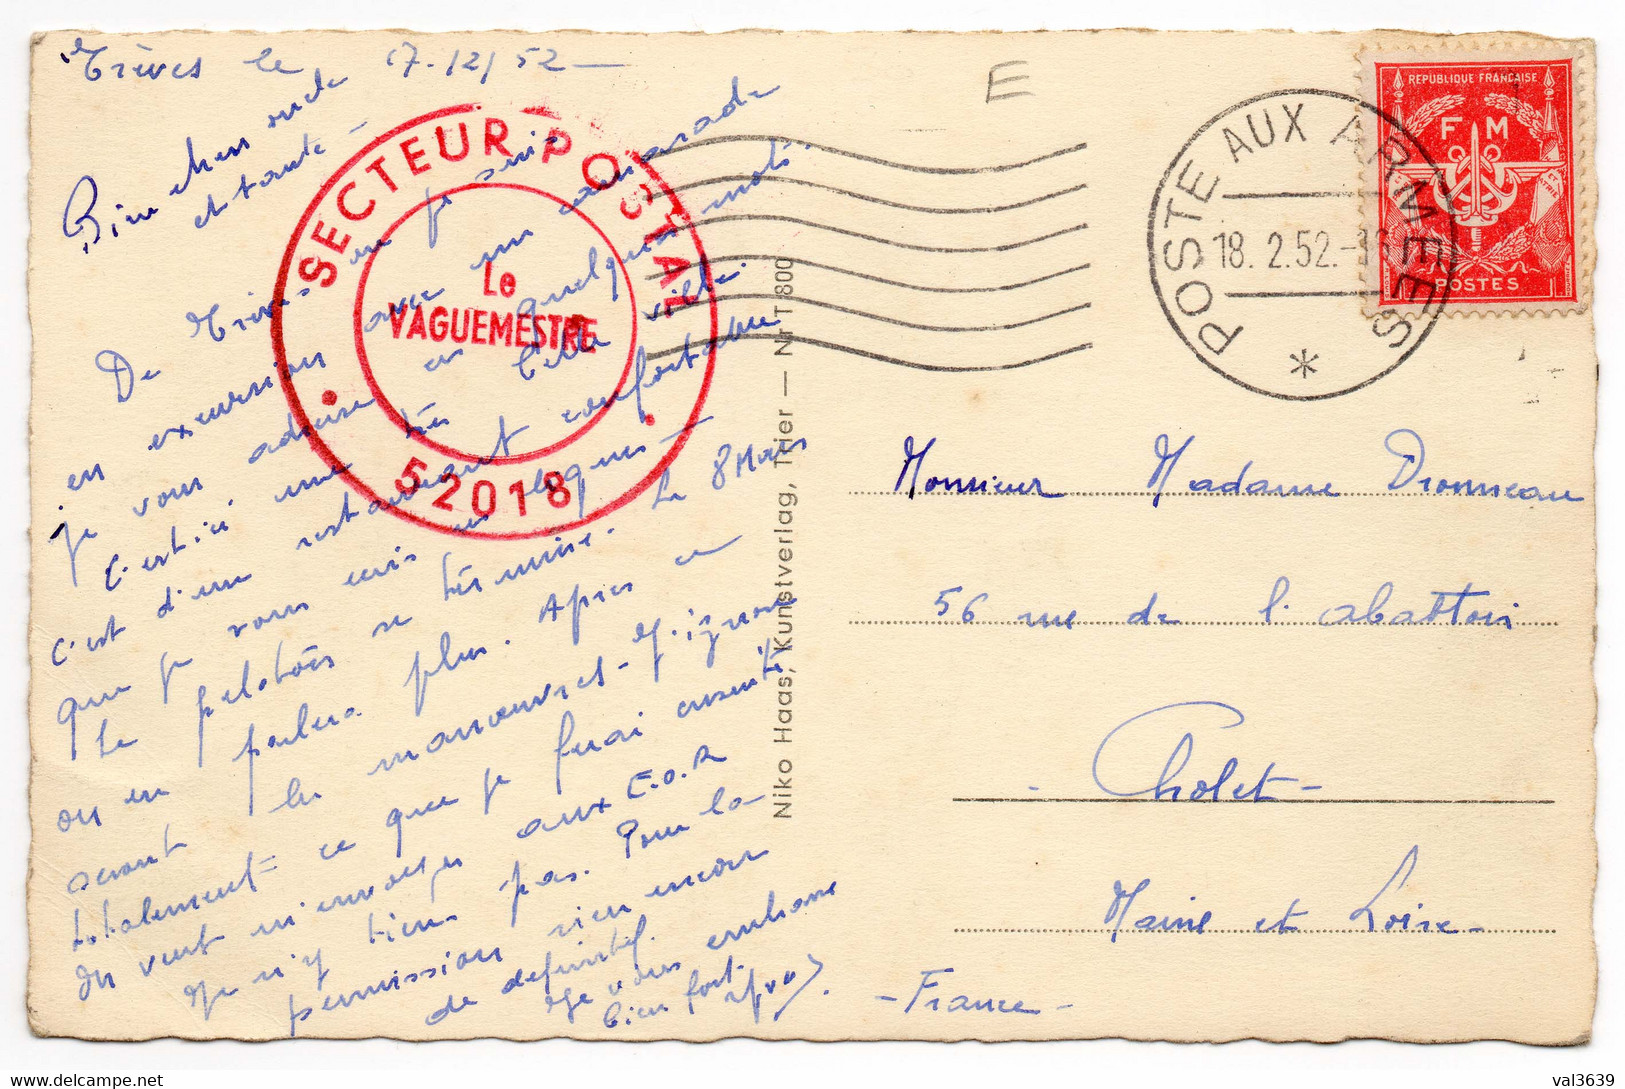 Trèves le 17/2/52 —
Bien chers oncle
et tante
De Trèves ou je suis
en excursion avec un camarade
je vous adresse ces quelques mots.
C'est ici une très belle ville.
C'est d'un restaurant confortable
que je vous écris ces lignes —
Le peloton se termine. Le 8 Mars
on en parlera plus. Après ce
seront les manœuvres. J'ignore
totalement ce que je ferai ensuite
On veut m'envoyer aux E.O.R
Je n'y tiens pas. Pour la
permission rien encore
de définitif.
Je vous embrasse
bien fort.
SECTEUR POSTAL
Le
VAGUEMESTRE
52018
Niko Haas, Kunstverlag, Trier — NTT 800
E
POSTE AUX ARMEES
18. 2. 52.
*
REPUBLIQUE FRANÇAISE
F M
POSTES
Monsieur Madame Dronneau
56 rue de l'abattoir
- Cholet -
Maine et Loire -
- France -
val3639